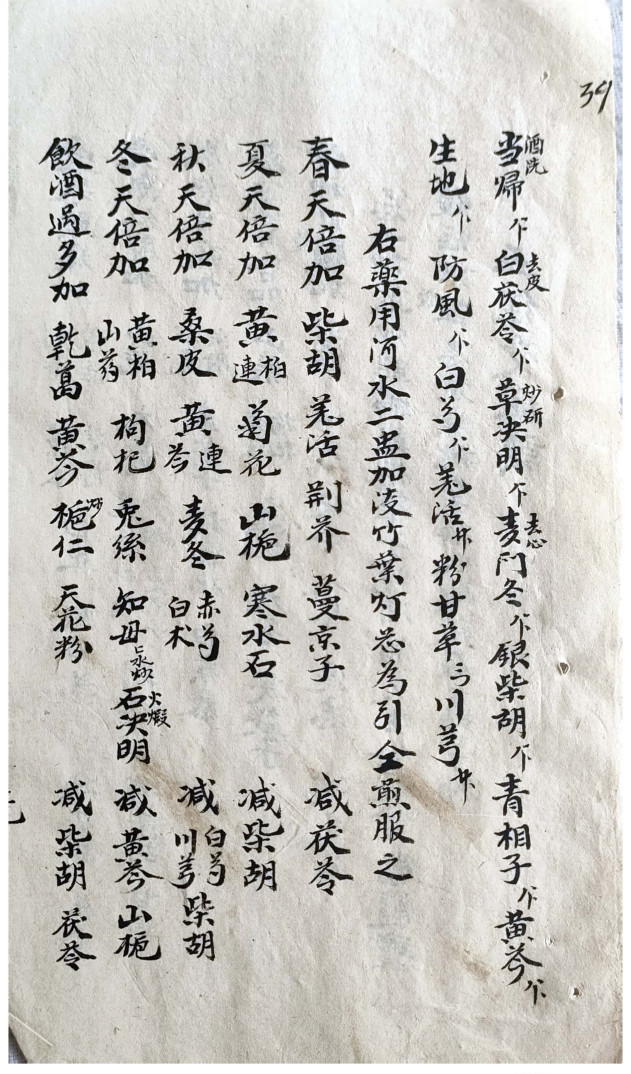 39
当帰酒洗 仐 白茯苓去皮 仐 草决明炒研 仐 麦门冬去心 仐 銀柴胡 仐 青相子 仐 黄芩 仐
生地 仐 防風 仐 白芍 仐 羌活 卄 粉甘草 三 川芎 卄
右藥用河水二盅加淡竹葉灯芯為引仝煎服之
春天倍加 柴胡 羌活 荆芥 蔓京子 减茯苓
夏天倍加 黄柏連 菊花 山栀 寒水石 减柴胡
秋天倍加 桑皮 黄連芩 麦冬 赤芍白术 减白芍川芎 柴胡
冬天倍加 黄柏山药 枸杞 兎絲 知母 石决明火煅 减黄芩 山栀
飲酒過多加 乾葛 黄芩 栀仁炒 天花粉 减柴胡 茯苓